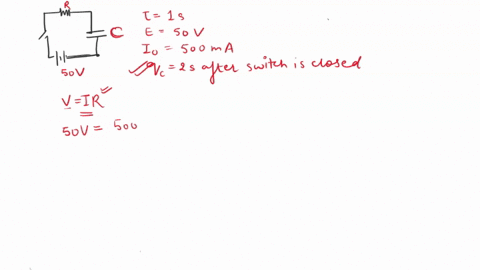 R
C
50V
τ = 1 s
E = 50 V
I₀ = 500 mA
V_C = 2s after switch is closed
V = IR
50V = 500